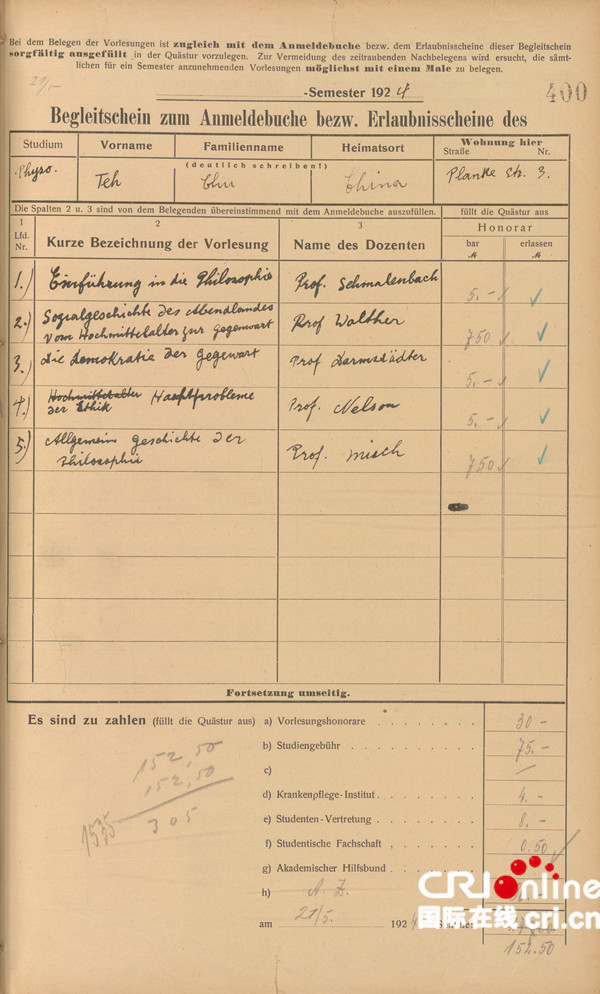 Bei dem Belegen der Vorlesungen ist zugleich mit dem Anmeldebuche bezw. dem Erlaubnisscheine dieser Begleitschein
sorgfältig ausgefüllt in der Quästur vorzulegen. Zur Vermeidung des zeitraubenden Nachbelegens wird ersucht, die sämt-
lichen für ein Semester anzunehmenden Vorlesungen möglichst mit einem Male zu belegen.
21/5
-Semester 1924
400
Begleitschein zum Anmeldebuche bezw. Erlaubnisscheine des
Studium Vorname Familienname Heimatsort Wohnung hier
Straße Nr.
(deutlich schreiben!)
Teh Chu China Planke Str. 3.
Die Spalten 2 u. 3 sind von dem Belegenden übereinstimmend mit dem Anmeldebuche auszufüllen. füllt die Quästur aus
1 2 3 Honorar
Lfd. Nr. Kurze Bezeichnung der Vorlesung Name des Dozenten bar erlassen
ℳ ℳ
1.) Einführung in die Philosophie Prof. Schmalenbach 5.- ✓
2.) Sozialgeschichte des Abendlandes Prof Walther 750 ✓
vom Hochmittelalter zur Gegenwart
3.) die Demokratie der Gegenwart Prof Darmstädter 5.- ✓
4.) Hochmittelalter Hauptprobleme Prof. Nelson 5.- ✓
der Ethik
5.) Allgemein Geschichte der Prof. Misch 750 ✓
Philosophie
Fortsetzung umseitig.
Es sind zu zahlen (füllt die Quästur aus) a) Vorlesungshonorare 30 -
b) Studiengebühr 75.-
c) —
d) Krankenpflege-Institut 4. -
e) Studenten-Vertretung 8. -
f) Studentische Fachschaft 0.50
g) Akademischer Hilfsbund
h) A. Z.
152,50
152,50
305
1535
am 21/5. 1924
152.50
CRI online
国际在线 cri.cn